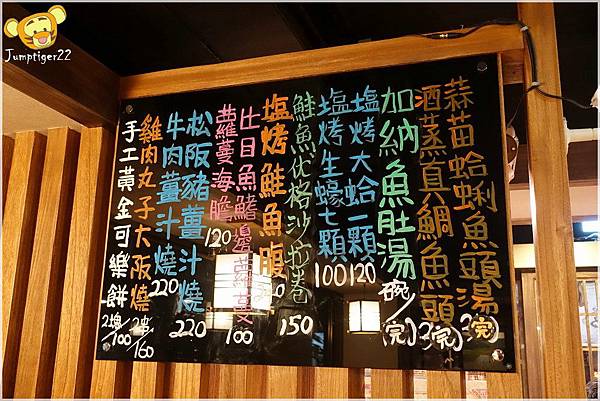 蒜苗蛤蜊魚頭湯 (完)
酒蒸真鯛魚頭 2(完)
加納魚肚湯 碗/(完)
塩烤大蛤一顆 120
塩烤生蠔七顆 100
鮭魚优格沙拉卷 150
塩烤鮭魚腹
比目魚鰭邊蘿蔓 100
蘿蔓海膽 120
松阪豬薑汁燒 220
牛肉薑汁燒 220
雞肉丸子大阪燒 2串/160
手工黃金可樂餅 2塊/100
Jumptiger22